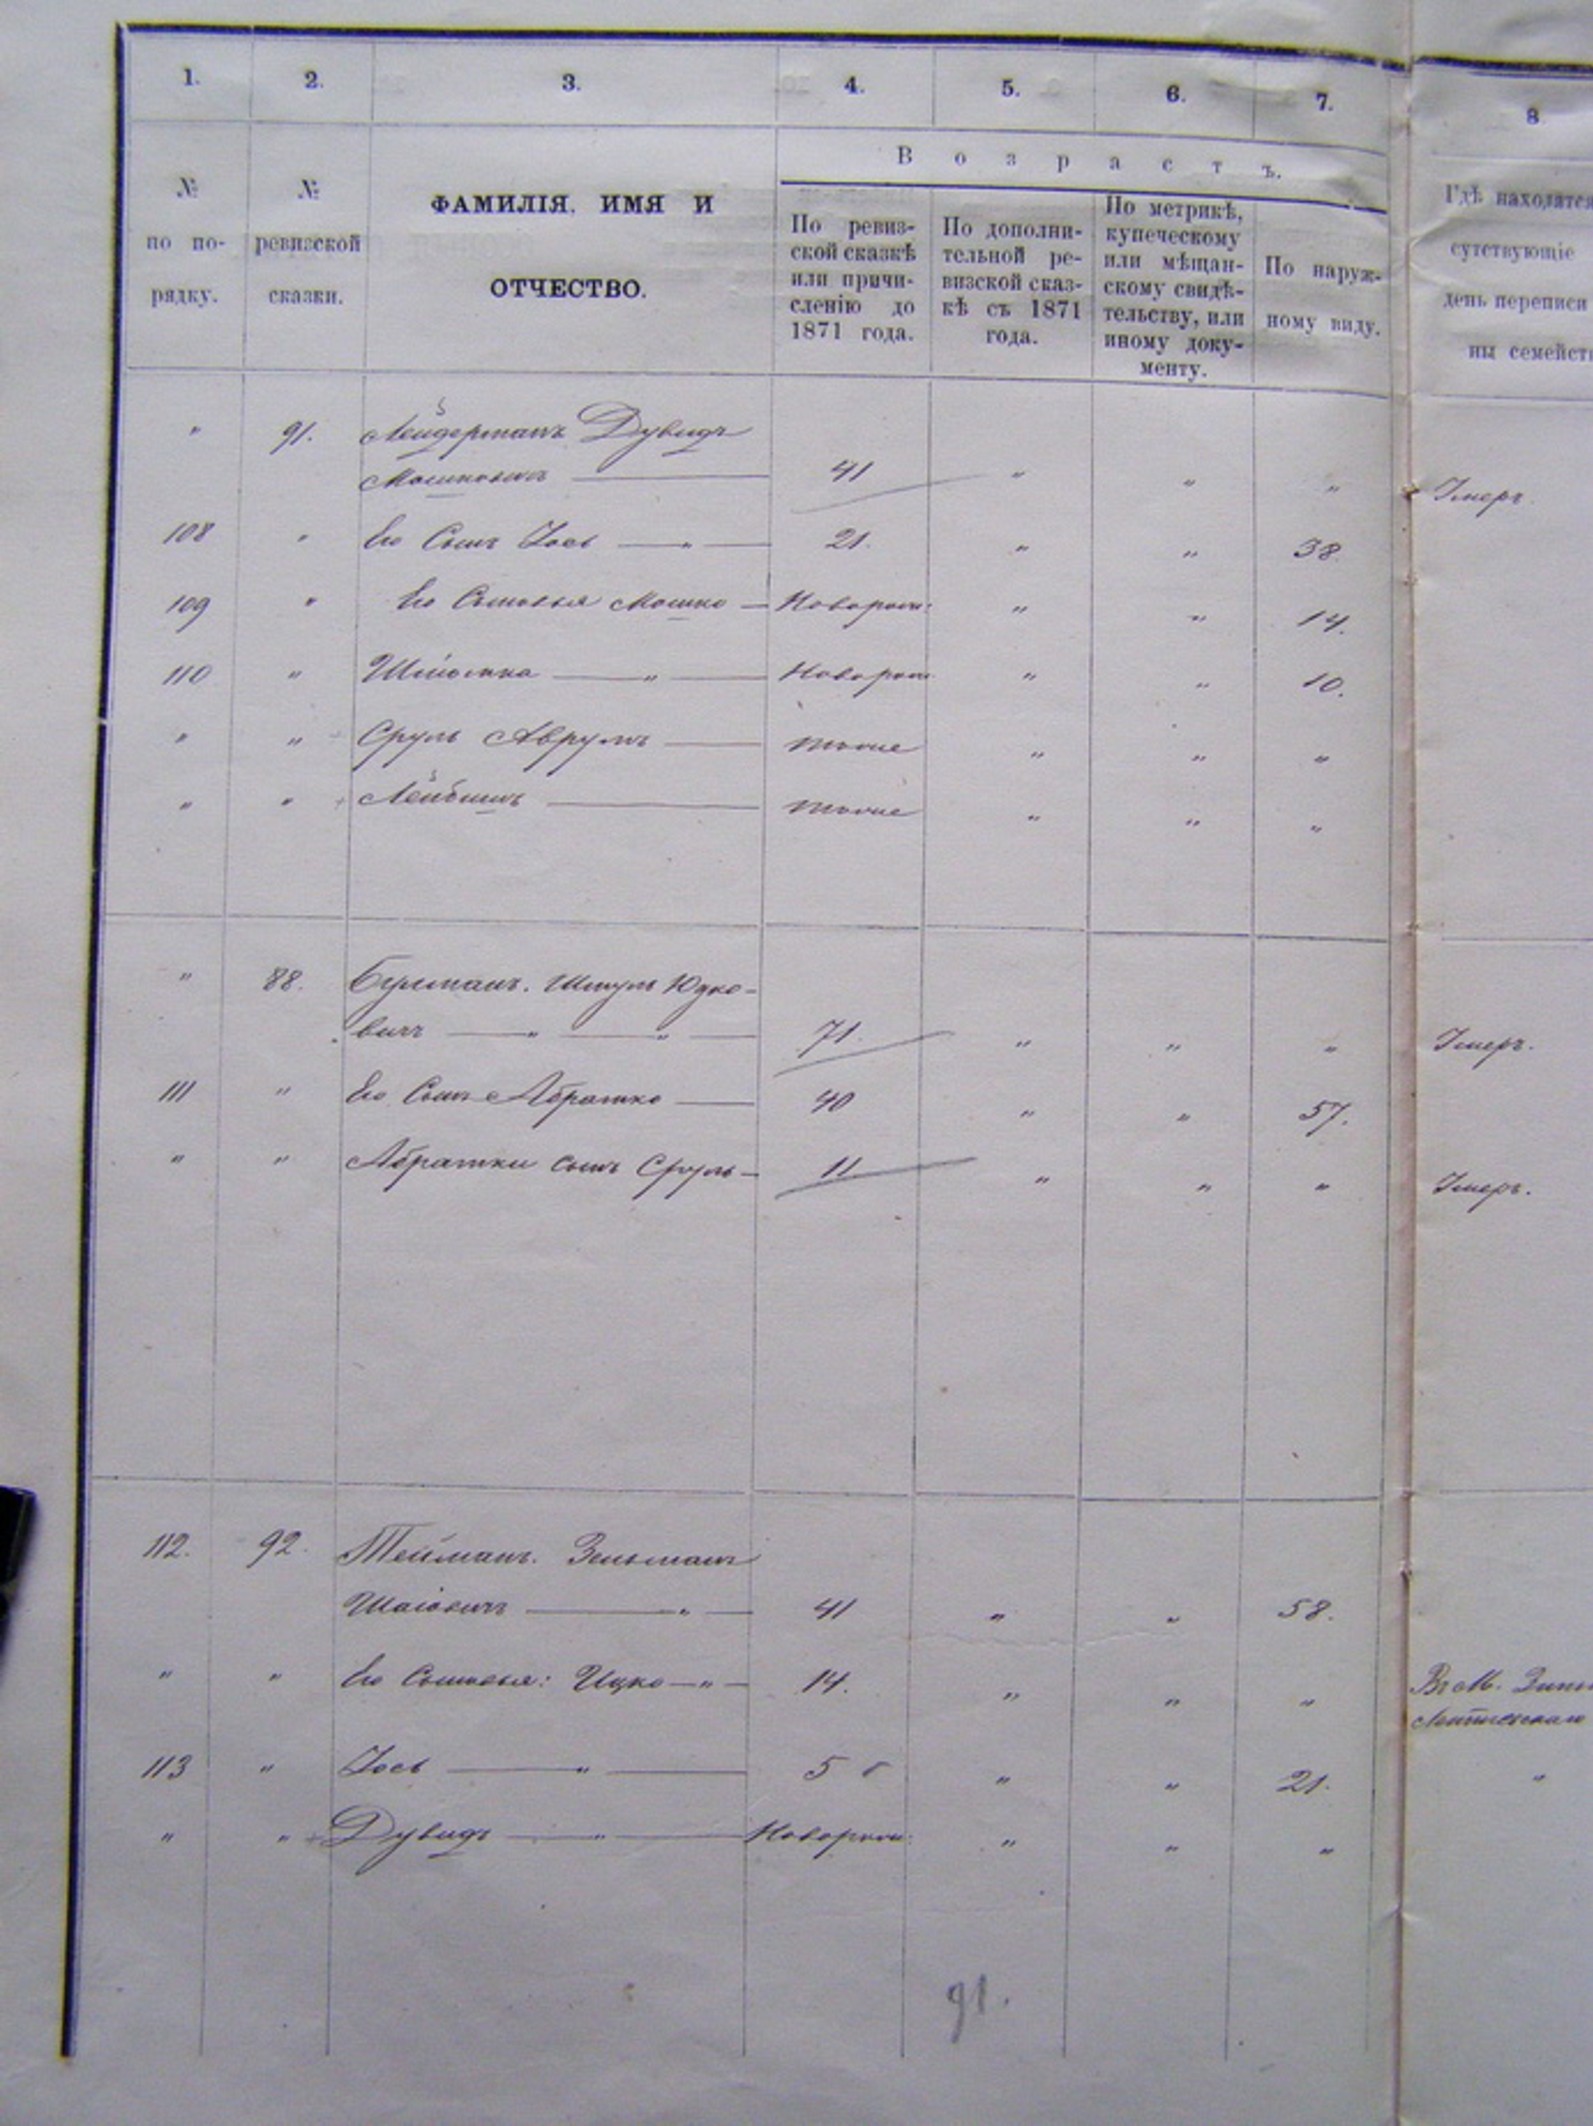 1. 2. 3. 4. 5. 6. 7. 8
№ по по-рядку.
№ ревизской сказки.
ФАМИЛІЯ, ИМЯ И
ОТЧЕСТВО.
Возрастъ.
По ревиз-
ской сказкѣ
или причи-
сленію до
1871 года.
По дополни-
тельной ре-
визской сказ-
кѣ съ 1871
года.
По метрикѣ,
купеческому
или мѣщан-
скому свидѣ-
тельству, или
иному доку-
менту.
По наруж-
ному виду.
Гдѣ находятся
сутствующіе
день переписи
ны семейст
" 91. Лейдерманъ Дувидъ
Мошковичъ 41 " " " Умеръ.
108 " Его Сынъ Іось " 21. " " 38.
109 " Его Сыновья МошкоНоворож: " " 14.
110 " Шліомка " Новорож " " 10.
" " Сруль Аврумъ тоже " " "
" " Лейбишъ тоже " " "
" 88. Шмуль Юдко-
вичъ " " 71. " " " Умеръ.
111 " Его Сынъ Абрамко 40 " " 57.
" " Абрамки сынъ Сруль 11 " " " Умеръ.
112. 92. Тейманъ. Зельманъ
Шаіовичъ " 41 " " 58.
" " Его Сыновья: Ицко " 14. " " " Въ М.
113 " Іось " 5 " " 21. "
" " Дувидъ " Новорож: " " "
91.